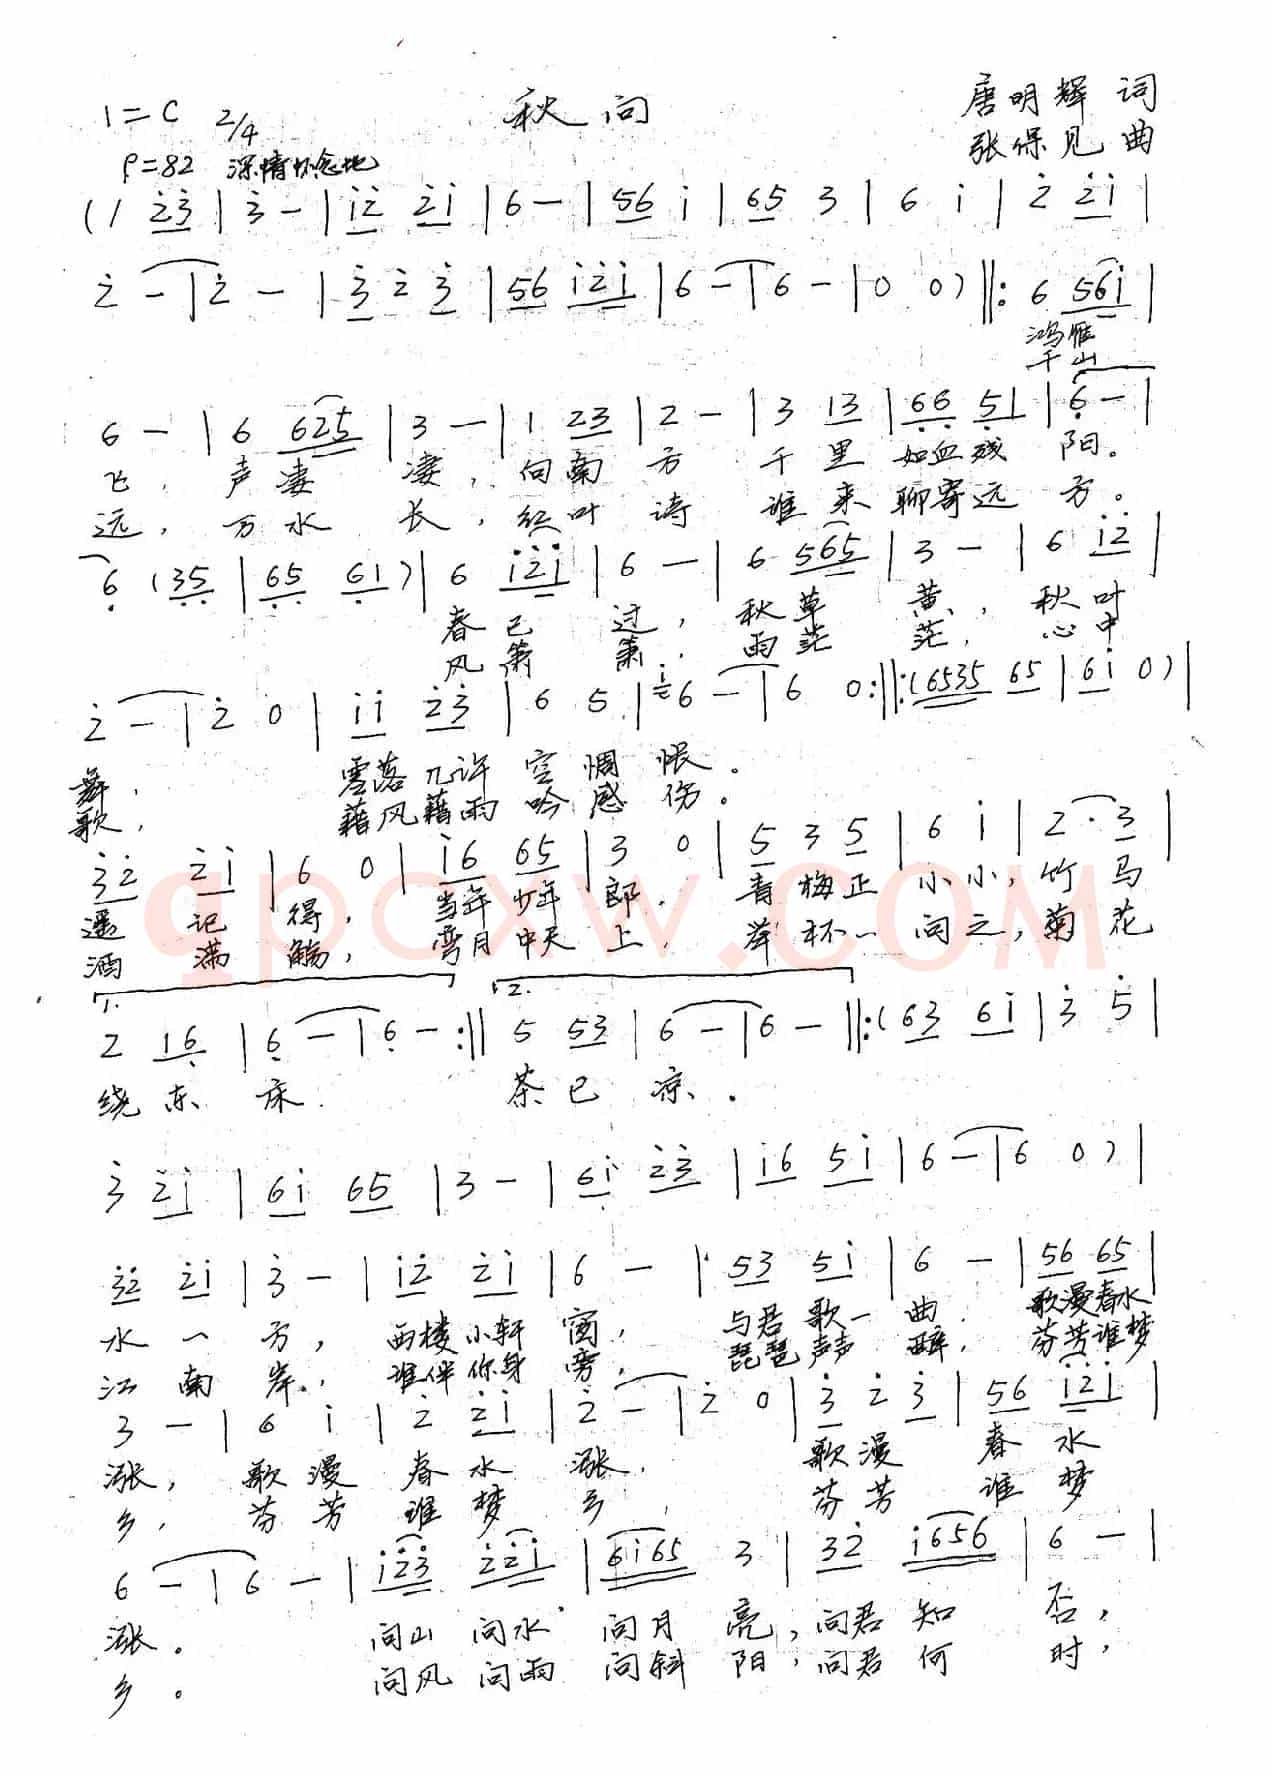 1=C 2/4 秋问 唐明辉 词
张保见 曲
♩=82 深情怀念地
(1 2̇3̇ | 3̇ - | i̇2̇ 2̇i̇ | 6 - | 56 i̇ | 65 3 | 6 i̇ | 2̇ 2̇i̇ |
2̇ - | 2̇ - | 3̇ 2̇ 3̇ | 56 i̇2̇i̇ | 6 - | 6 - | 0 0) ||: 6 56i̇ |
鸿雁
千山
6 - | 6 625 | 3 - | 1 23 | 2 - | 3 13 | 6̣6̣ 5̣1 | 6̣ - |
飞，声凄 凄，向南 方 千里 如血残 阳。
远，万水 长，红叶 诗 谁来 聊寄远 方。
6̣ (3̣5̣ | 6̣5̣ 6̣1) | 6 i̇2̇i̇ | 6 - | 6 565 | 3 - | 6 i̇2̇ |
春已 过，秋草 黄，秋叶
风箫 箫，雨茫 茫，心中
2̇ - | 2̇ 0 | i̇i̇ 2̇3̇ | 6 5 | i̇ 6 - | 6 0 :||: (6535 65 | 6i̇ 0) |
舞， 零落几许 空惆 怅。
歌， 藉风藉雨 吟感 伤。
3̇2̇ 2̇i̇ | 6 0 | i̇6 65 | 3 0 | 5 3 5 | 6 i̇ | 2 · 3 |
遥 记 得， 当年少年 郎， 青梅正 小小，竹 马
酒 满 觞， 弯月中天 上， 举杯一 问之，菊 花
1. 2.
2 16̣ | 6̣ - | 6̣ - :|| 5 53 | 6 - | 6 - ||: (63 6i̇ | 3̇ 5̇ |
绕东 床 茶已 凉。
3̇ 2̇i̇ | 6i̇ 65 | 3 - | 6i̇ 2̇3̇ | i̇6 5i̇ | 6 - | 6 0) |
3̇2̇ 2̇i̇ | 3̇ - | i̇2̇ 2̇i̇ | 6 - | 53 5i̇ | 6 - | 56 65 |
水 一 方， 西楼小轩 窗， 与君歌一 曲， 歌漫春水
江 南 岸， 谁伴你身 旁， 琵琶声声 醉， 芬芳谁梦
3 - | 6 i̇ | 2̇ 2̇i̇ | 2̇ - | 2̇ 0 | 3̇ 2̇ 3̇ | 56 i̇2̇i̇ |
涨，歌漫 春水 涨， 歌漫 春水
乡，芬芳 谁梦 乡 芬芳 谁梦
6 - | 6 - | i̇2̇3̇ 2̇2̇i̇ | 6i̇65 3 | 32̇ i̇656 | 6 - |
涨。 问山 问水 问月 亮，问君 知 否，
乡。 问风 问雨 问斜 阳，问君 何 时，
qpcxw.com